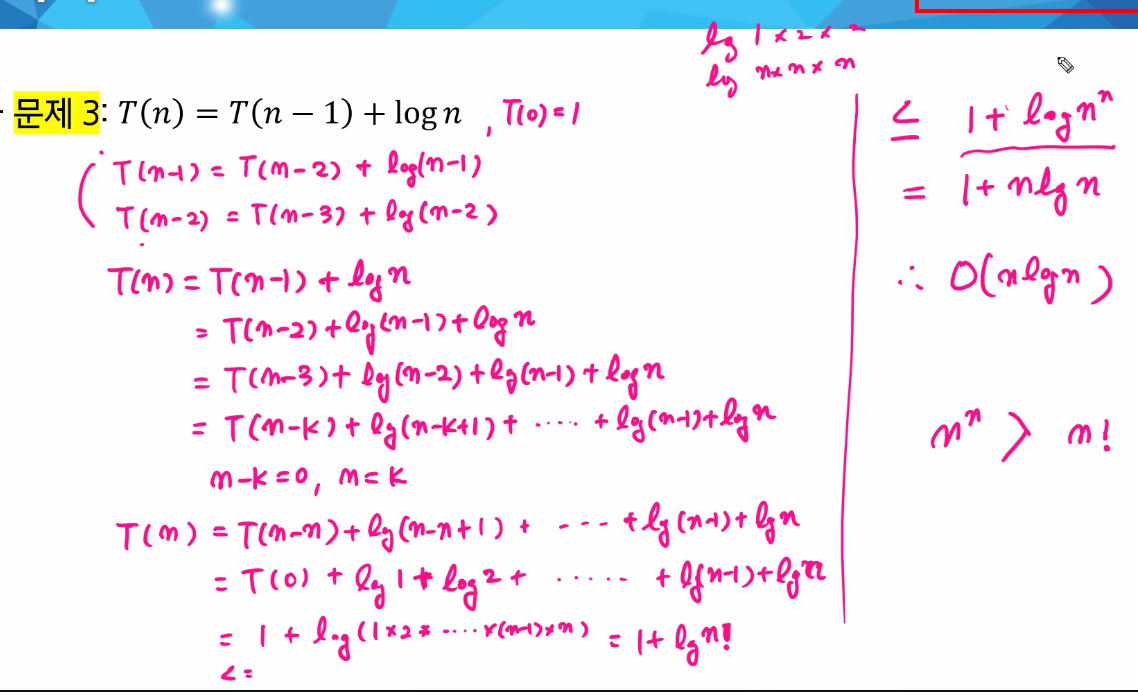 lg 1 × 2 × 2
log n × n × n
문제 3: T(n) = T(n − 1) + log n , T(0) = 1
T(n-1) = T(n-2) + log(n-1)
T(n-2) = T(n-3) + log(n-2)
T(n) = T(n-1) + log n
= T(n-2) + log(n-1) + log n
= T(n-3) + lg(n-2) + lg(n-1) + log n
= T(n-k) + lg(n-k+1) + ····· + lg(n-1) + log n
n-k=0, n=k
T(n) = T(n-n) + lg(n-n+1) + --- + lg(n-1) + lgn
= T(0) + lg 1 + log 2 + ······ + lg(n-1) + lgn
= 1 + log(1×2× ····×(n-1)×n) = 1 + lg n!
<=
≤ 1 + log nⁿ
= 1 + nlgn
∴ O(nlogn)
nⁿ > n!